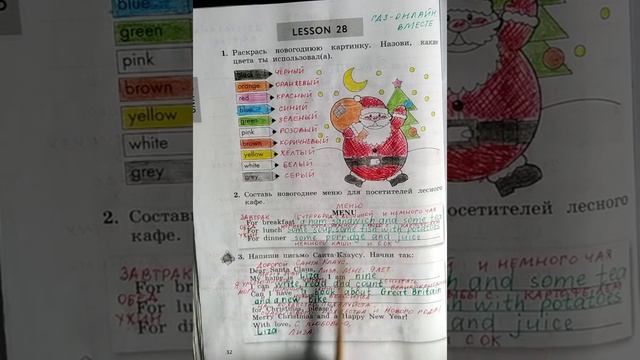 LESSON 28
ГДЗ-ОНЛАЙН
ВМЕСТЕ
1. Раскрась новогоднюю картинку. Назови, какие
цвета ты использовал(а).
black ЧЁРНЫЙ
orange ОРАНЖЕВЫЙ
red КРАСНЫЙ
blue СИНИЙ
green ЗЕЛЁНЫЙ
pink РОЗОВЫЙ
brown КОРИЧНЕВЫЙ
yellow ЖЁЛТЫЙ
white БЕЛЫЙ
grey СЕРЫЙ
2. Составь новогоднее меню для посетителей лесного
кафе.
МЕНЮ
MENU
ЗАВТРАК БУТЕРБРОД С ВЕТЧИНОЙ И НЕМНОГО ЧАЯ
For breakfast a ham sandwich and some tea
ОБЕД
For lunch some soup, some fish with potatoes
УЖИН
For dinner some porridge and juice
НЕМНОГО КАШИ И СОК
3. Напиши письмо Санта-Клаусу. Начни так:
ДОРОГОЙ САНТА-КЛАУС,
Dear Santa Claus,
My name is Liza. I am nine
I can write, read and count
Can I have a book about Great Britain
and a new bike
for Christmas, please?
Merry Christmas and a Happy New Year!
With love, С ЛЮБОВЬЮ,
Liza ЛИЗА
32
blue
green
pink
brown
yellow
white
grey
2. Составь
кафе.
ЗАВТРАК
For br
ОБЕД
For lu
УЖИН
For di
посетителей лесного
И НЕМНОГО ЧАЯ
and some tea
with potatoes
and juice
СОК